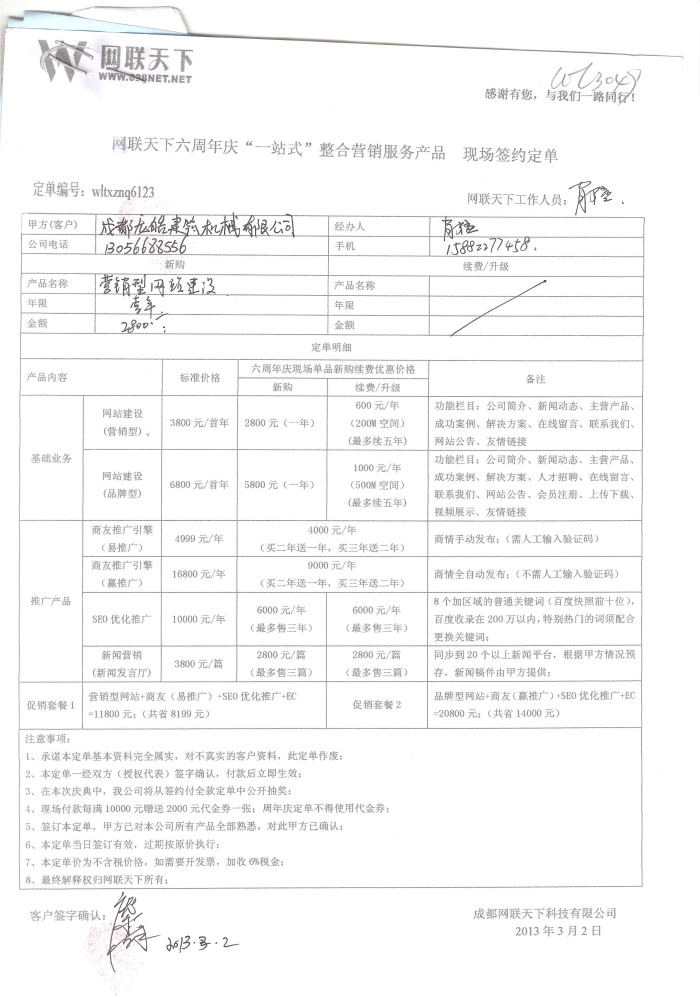 网联天下
WWW.028NET.NET
wl3049
感谢有您，与我们一路同行！
网联天下六周年庆“一站式”整合营销服务产品 现场签约定单
定单编号：wltxznq6123
网联天下工作人员：
甲方(客户) 成都龙皓建筑机械有限公司 经办人
公司电话 13056688556 手机 15882277458.
新购 续费/升级
产品名称 营销型网站建设 产品名称
年限 壹年 年限
金额 2800 金额
定单明细
产品内容 标准价格 六周年庆现场单品新购续费优惠价格 备注
新购 续费/升级
基础业务
网站建设
(营销型)、
3800 元/首年 2800 元（一年）
600 元/年
(200M 空间)
(最多续五年)
功能栏目：公司简介、新闻动态、主营产品、
成功案例、解决方案、在线留言、联系我们、
网站公告、友情链接
网站建设
(品牌型)
6800 元/首年 5800 元（一年）
1000 元/年
(500M 空间)
(最多续五年)
功能栏目：公司简介、新闻动态、主营产品、
成功案例、解决方案、人才招聘、在线留言、
联系我们、网站公告、会员注册、上传下载、
视频展示、友情链接
推广产品
商友推广引擎
（易推广）
4999 元/年
4000 元/年
（买二年送一年，买三年送二年）
商情手动发布；（需人工输入验证码）
商友推广引擎
（赢推广）
16800 元/年
9000 元/年
（买二年送一年，买三年送二年）
商情全自动发布；（不需人工输入验证码）
SEO 优化推广 10000 元/年
6000 元/年
（最多售三年）
6000 元/年
（最多售三年）
8 个加区域的普通关键词（百度快照前十位），
百度收录在 200 万以内，特别热门的词须配合
更换关键词；
新闻营销
(新闻发言厅)
3800 元/篇
2800 元/篇
（最多售三篇）
2800 元/篇
（最多售三篇）
同步到 20 个以上新闻平台，根据甲方情况预
存，新闻稿件由甲方提供；
促销套餐 1
营销型网站+商友（易推广）+SEO 优化推广+EC
=11800 元；（共省 8199 元）
促销套餐 2
品牌型网站+商友（赢推广）+SEO 优化推广+EC
=20800 元；（共省 14000 元）
注意事项：
1、承诺本定单基本资料完全属实，对不真实的客户资料，此定单作废；
2、本定单一经双方（授权代表）签字确认，付款后立即生效；
3、在本次庆典中，我公司将从签约付全款定单中公开抽奖；
4、现场付款每满 10000 元赠送 2000 元代金券一张；周年庆定单不得使用代金券；
5、签订本定单，甲方已对本公司所有产品全部熟悉，对此甲方已确认；
6、本定单当日签订有效，过期按原价执行；
7、本定单价为不含税价格，如需要开发票，加收 6%税金；
8、最终解释权归网联天下所有；
客户签字确认：
2013.3.2
成都网联天下科技有限公司
2013 年 3 月 2 日